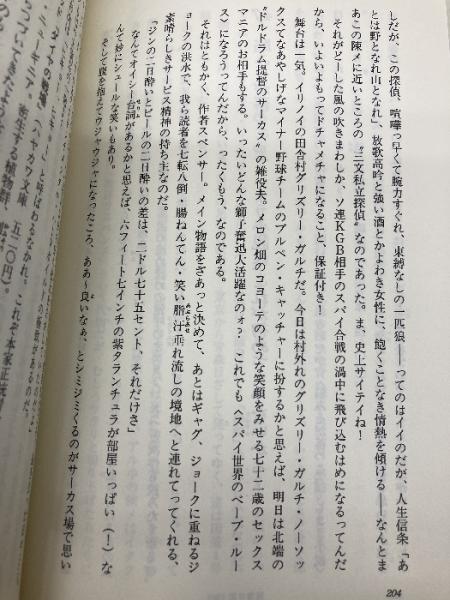 しだが、この探偵、喧嘩っ早くて腕力すぐれ、束縛なしの一匹狼――ってのはイイのだが、人生信条「あ
とは野となれ山となれ」、放歌高吟と強い酒とかよわき女性に、飽くことなき情熱を傾ける――なんとま
あこの陳メに近いところの〝三文私立探偵〟なのであった。ま、史上サイテイね！
それがどーした風の吹きまわしか、ソ連KGB相手のスパイ合戦の渦中に飛び込むはめになるってんだ
から、いよいよもってドチャメチャになること、保証付き！
舞台は一気。イリノイの田舎村グリズリー・ガルチだ。今日は村外れのグリズリー・ガルチ・ノーソッ
クスてなあやしげなマイナー野球チームのブルペン・キャッチャーに扮するかと思えば、明日は北端の
〝ドルドラム提督のサーカス〟の雑役夫。メロン畑のコヨーテのような笑顔をみせる七十二歳のセックス
マニアのお相手もする。いったいどんな獅子奮迅大活躍なのォ？　これでも〈スパイ世界のベーブ・ルー
ス〉になろうってんだから、ったくもう、なのである。
それはともかく、作者スペンサー。メイン物語をざあっと決めて、あとはギャグ、ジョークに重ねるジ
ョークの洪水で、我ら読者を七転八倒・腸ねんてん・笑い脂汗垂れ流しの境地へと連れてってくれる、
素晴らしきサービス精神の持ち主なのだ。
「ジンの二日酔いとビールの二日酔いの差は、二ドル七十五セント、それだけさ」
なんてオイシー台詞があるかと思えば、〝六フィート七インチの紫タランチュラが部屋いっぱい（！）な
んて妙にシュールな笑いもあり。
そして腹を抱えてウジャウジャになったころ、ああ～良いなぁ、とシミジミくるのがサーカス場で思い
204